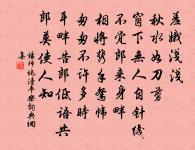 羞蛾淺淺
秋水如刀剪
窗下無人自針綫
不覺郎來身畔
相將攜手鴛幃
匆匆不許多時
耳畔告郎低語共
郎莫使人知
楊師純清平樂詞典網
集